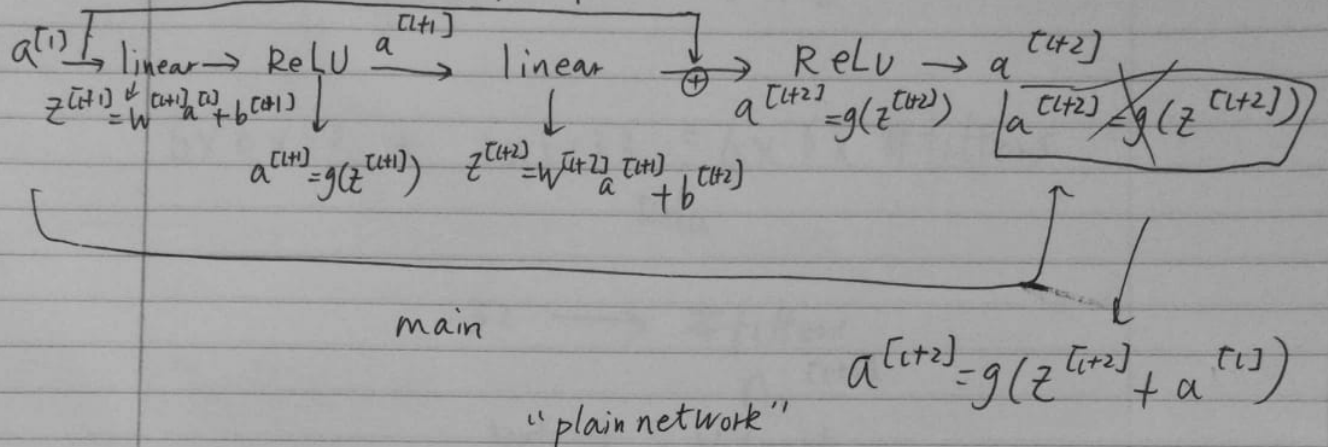 a^[l] → linear → ReLU —a^[l+1]→ linear —⊕→ ReLU → a^[l+2]
z^[l+1] = W^[l+1] a^[l] + b^[l+1]
a^[l+2] = g(z^[l+2])
a^[l+2] = g(z^[l+2])
a^[l+1] = g(z^[l+1])
z^[l+2] = W^[l+2] a^[l+1] + b^[l+2]
main
a^[l+2] = g(z^[l+2] + a^[l])
"plain network"